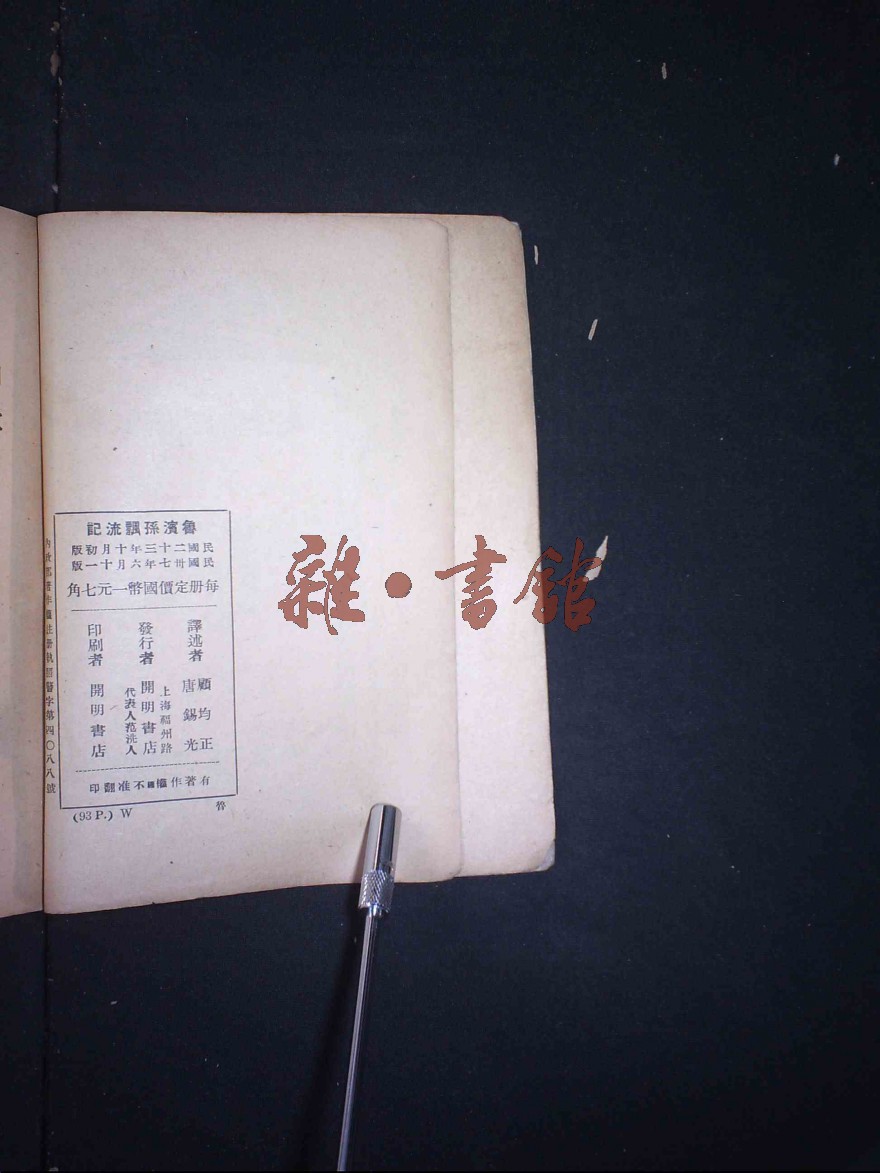 魯濱孫飄流記
民國二十三年十月初版
民國卅七年六月十一版
每册定價國幣一元七角
譯述者
顧均正
唐錫光
發行者
上海福州路
開明書店
代表人范洗人
印刷者
開明書店
有著作權不准翻印
內政部著作權註册執照警字第四〇八八號
(93 P.) W
雜•書館